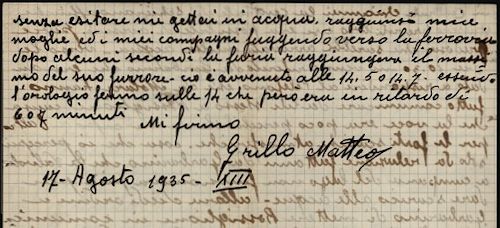 senza esitare mi gettai in acqua. raggiunsi mia
moglie ed i miei compagni fuggendo verso la ferrovia
dopo alcuni secondi la furia raggiungeva il massi
mo del suo furrore - ciò è avvenuto alle 14,5 o 14,7 - essendo
l'orologio fermo sulle 14 che però era in ritardo di
6 o 7 minuti
Mi firmo
Grillo Matteo
17 - Agosto 1935 - XIII